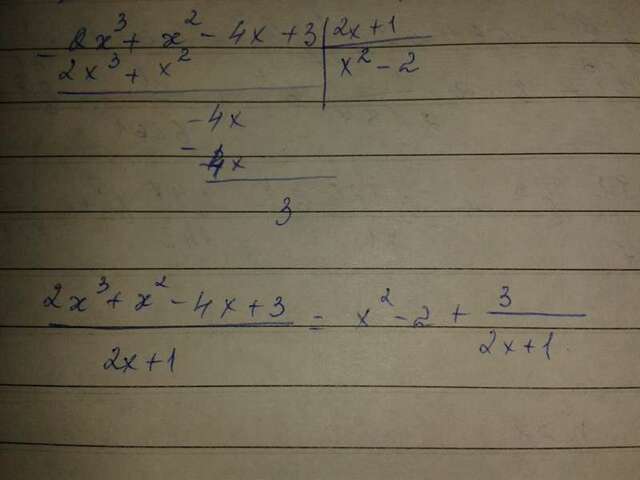 - 2x³ + x² - 4x + 3 | 2x + 1
2x³ + x² | x² - 2
- 4x
- -4x
3
2x³ + x² - 4x + 3 / 2x + 1 = x² - 2 + 3 / 2x + 1